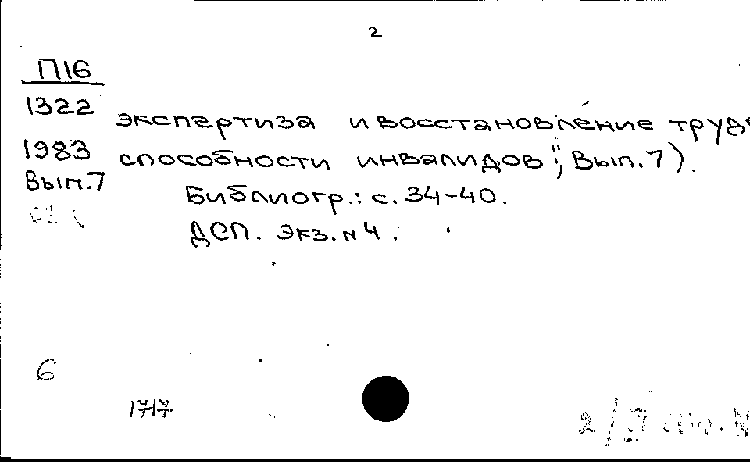 2
П16
1322
1983
Вып.7
экспертиза и восстановление трудо
способности инвалидов"; Вып.7).
Библиогр.: с. 34-40.
ДСП. Экз. N 4.
6
1717